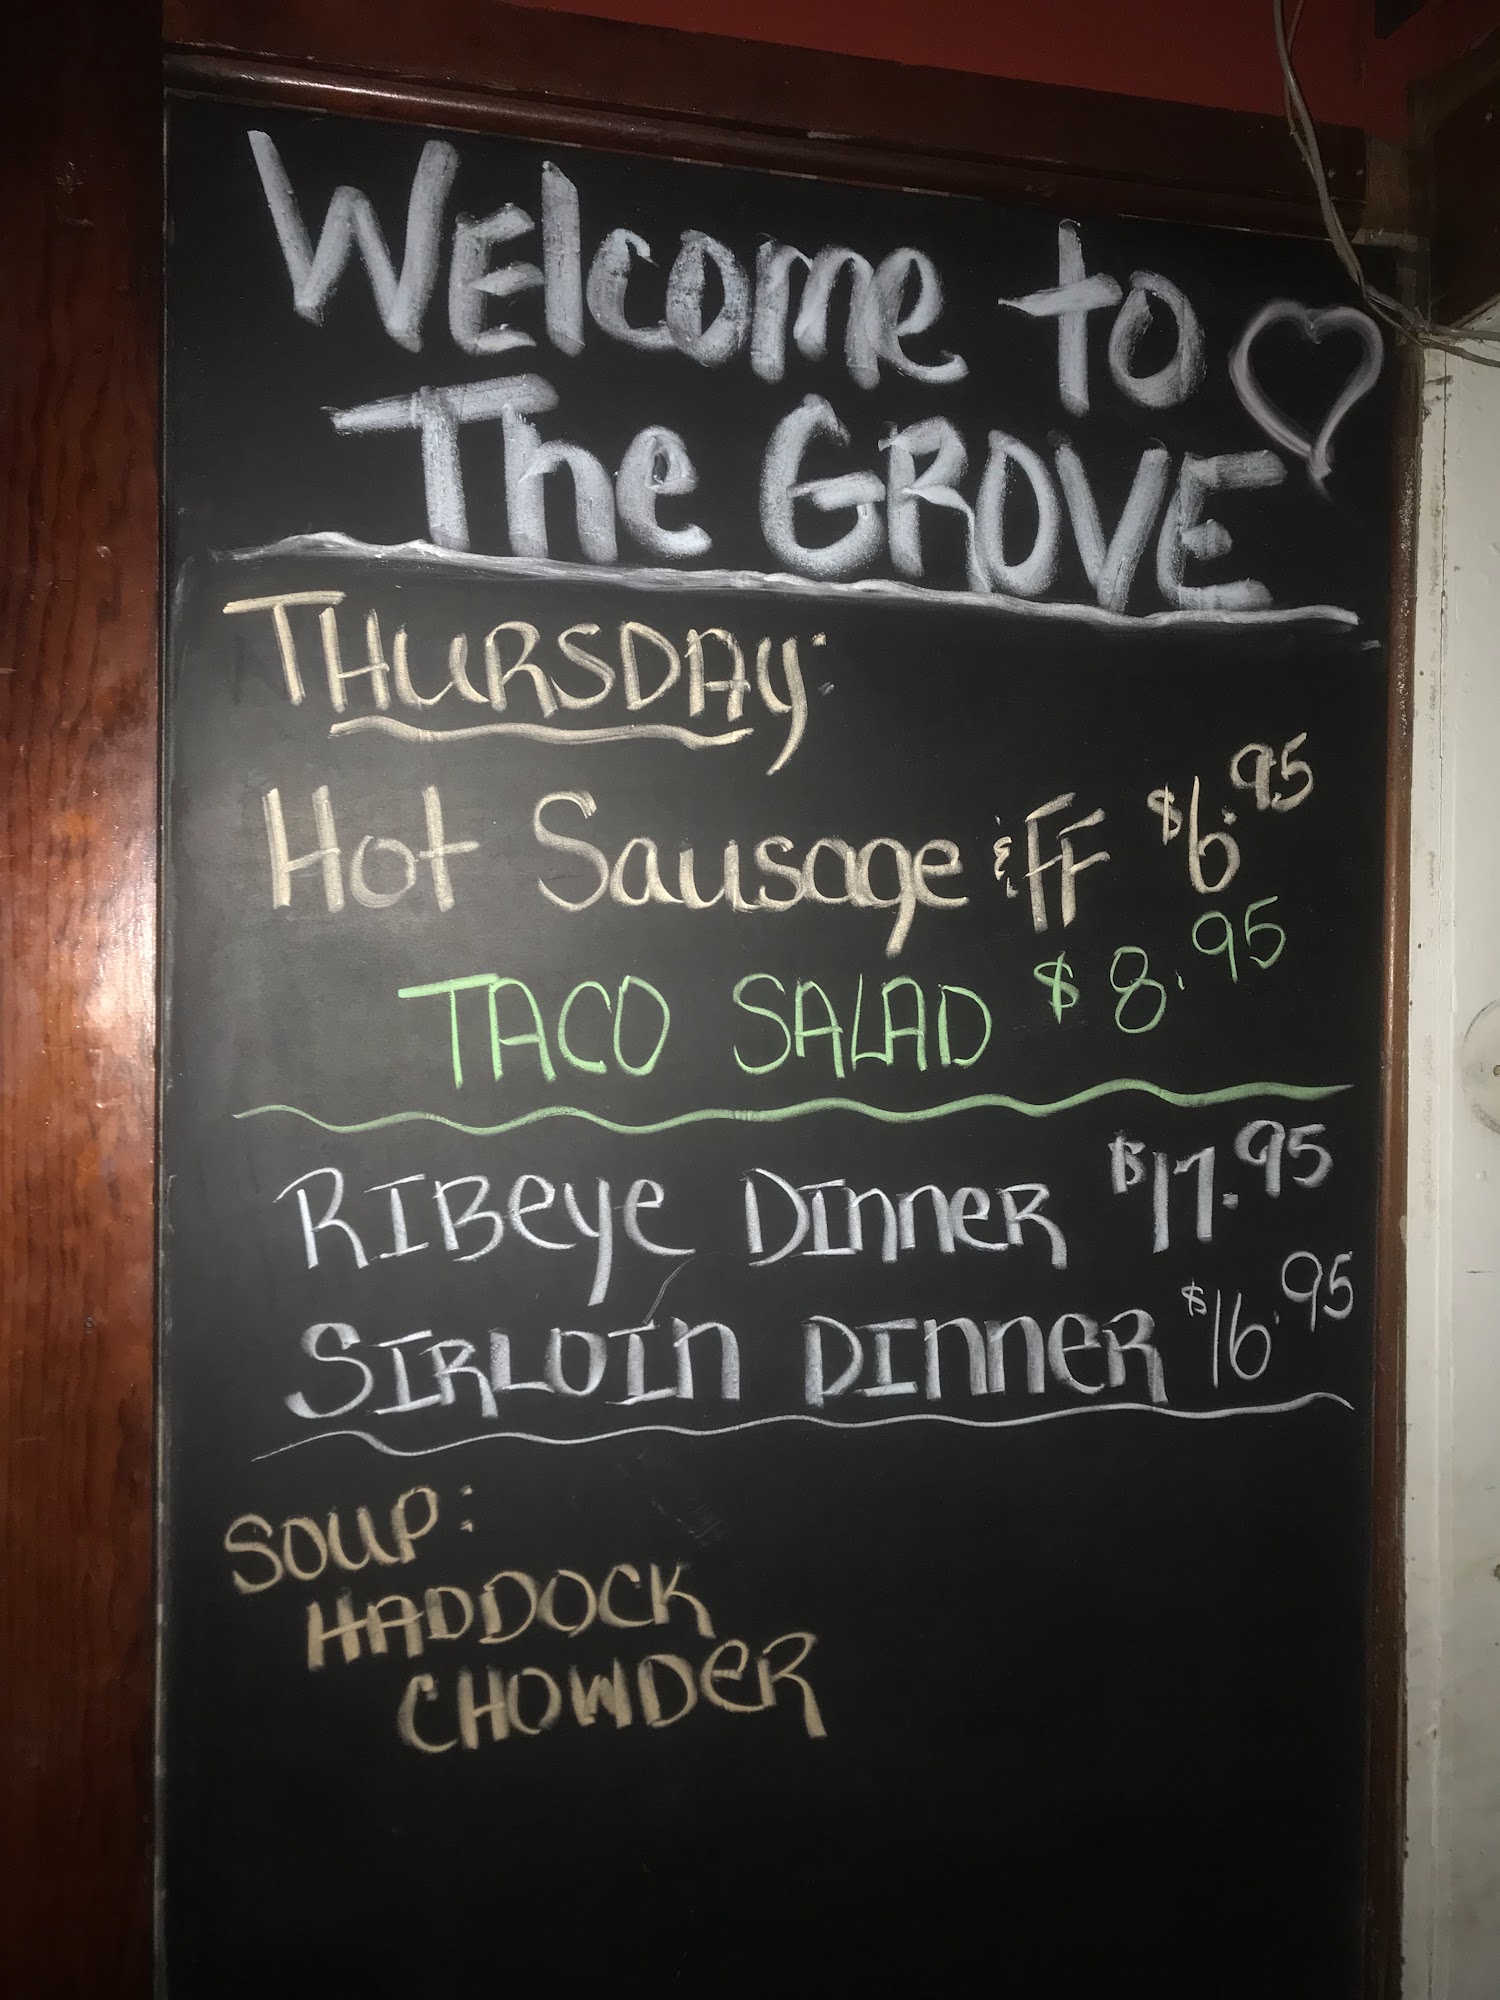 Welcome to
The GROVE
THURSDAY:
Hot Sausage & FF $6.95
TACO SALAD $8.95
RIBeye DInneR $17.95
SIRLOIn DInneR $16.95
SOUP:
HADDOCK
CHOWDeR